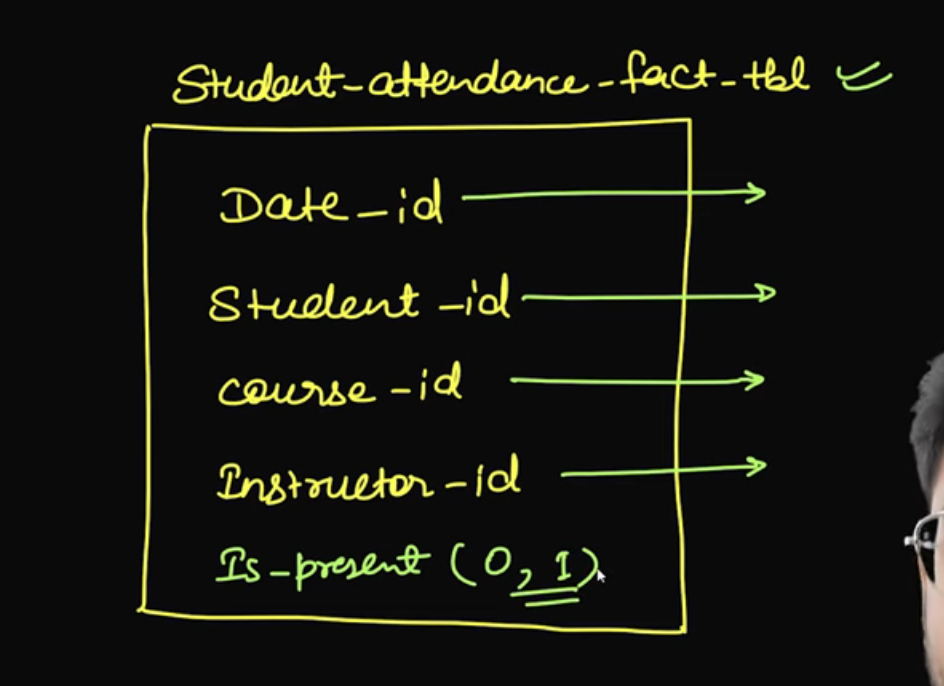 Student-attendance-fact-tbl
Date_id
Student-id
course-id
Instructor-id
Is-present (0, 1)